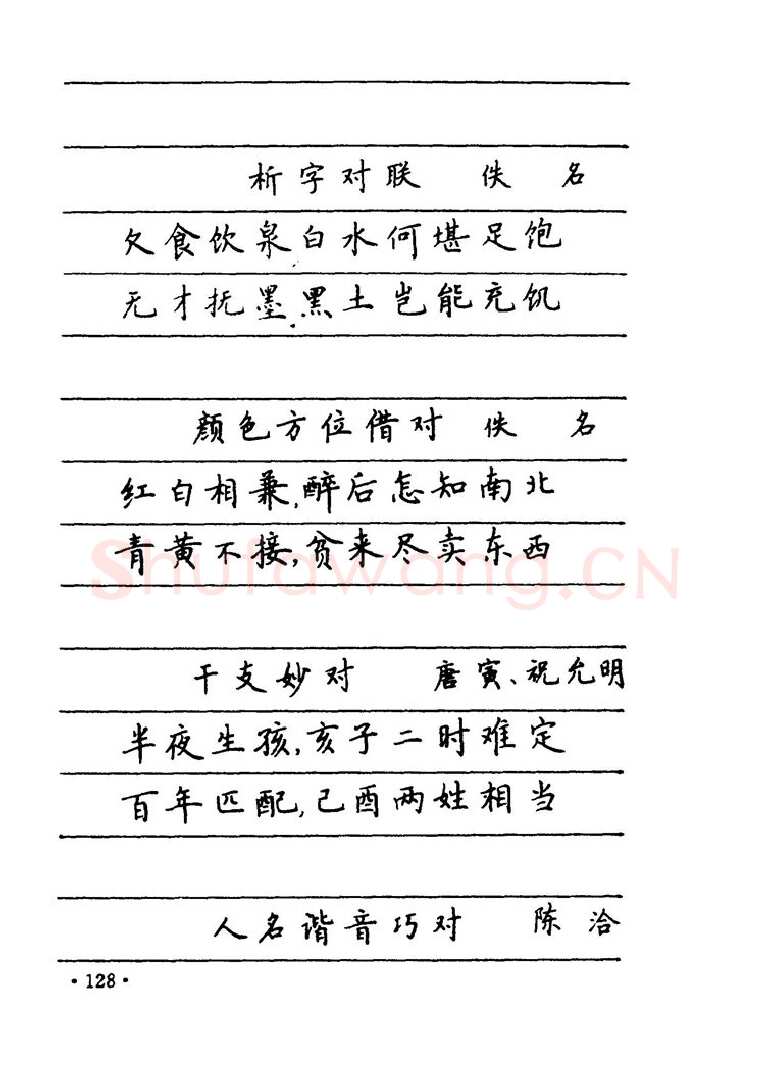 析字对联 佚名
欠食饮泉白水何堪足饱
无才抚墨黑土岂能充饥
颜色方位借对 佚名
红白相兼,醉后怎知南北
青黄不接,贫来尽卖东西
Shufawang.CN
干支妙对 唐寅、祝允明
半夜生孩,亥子二时难定
百年匹配,己酉两姓相当
人名谐音巧对 陈洽
·128·